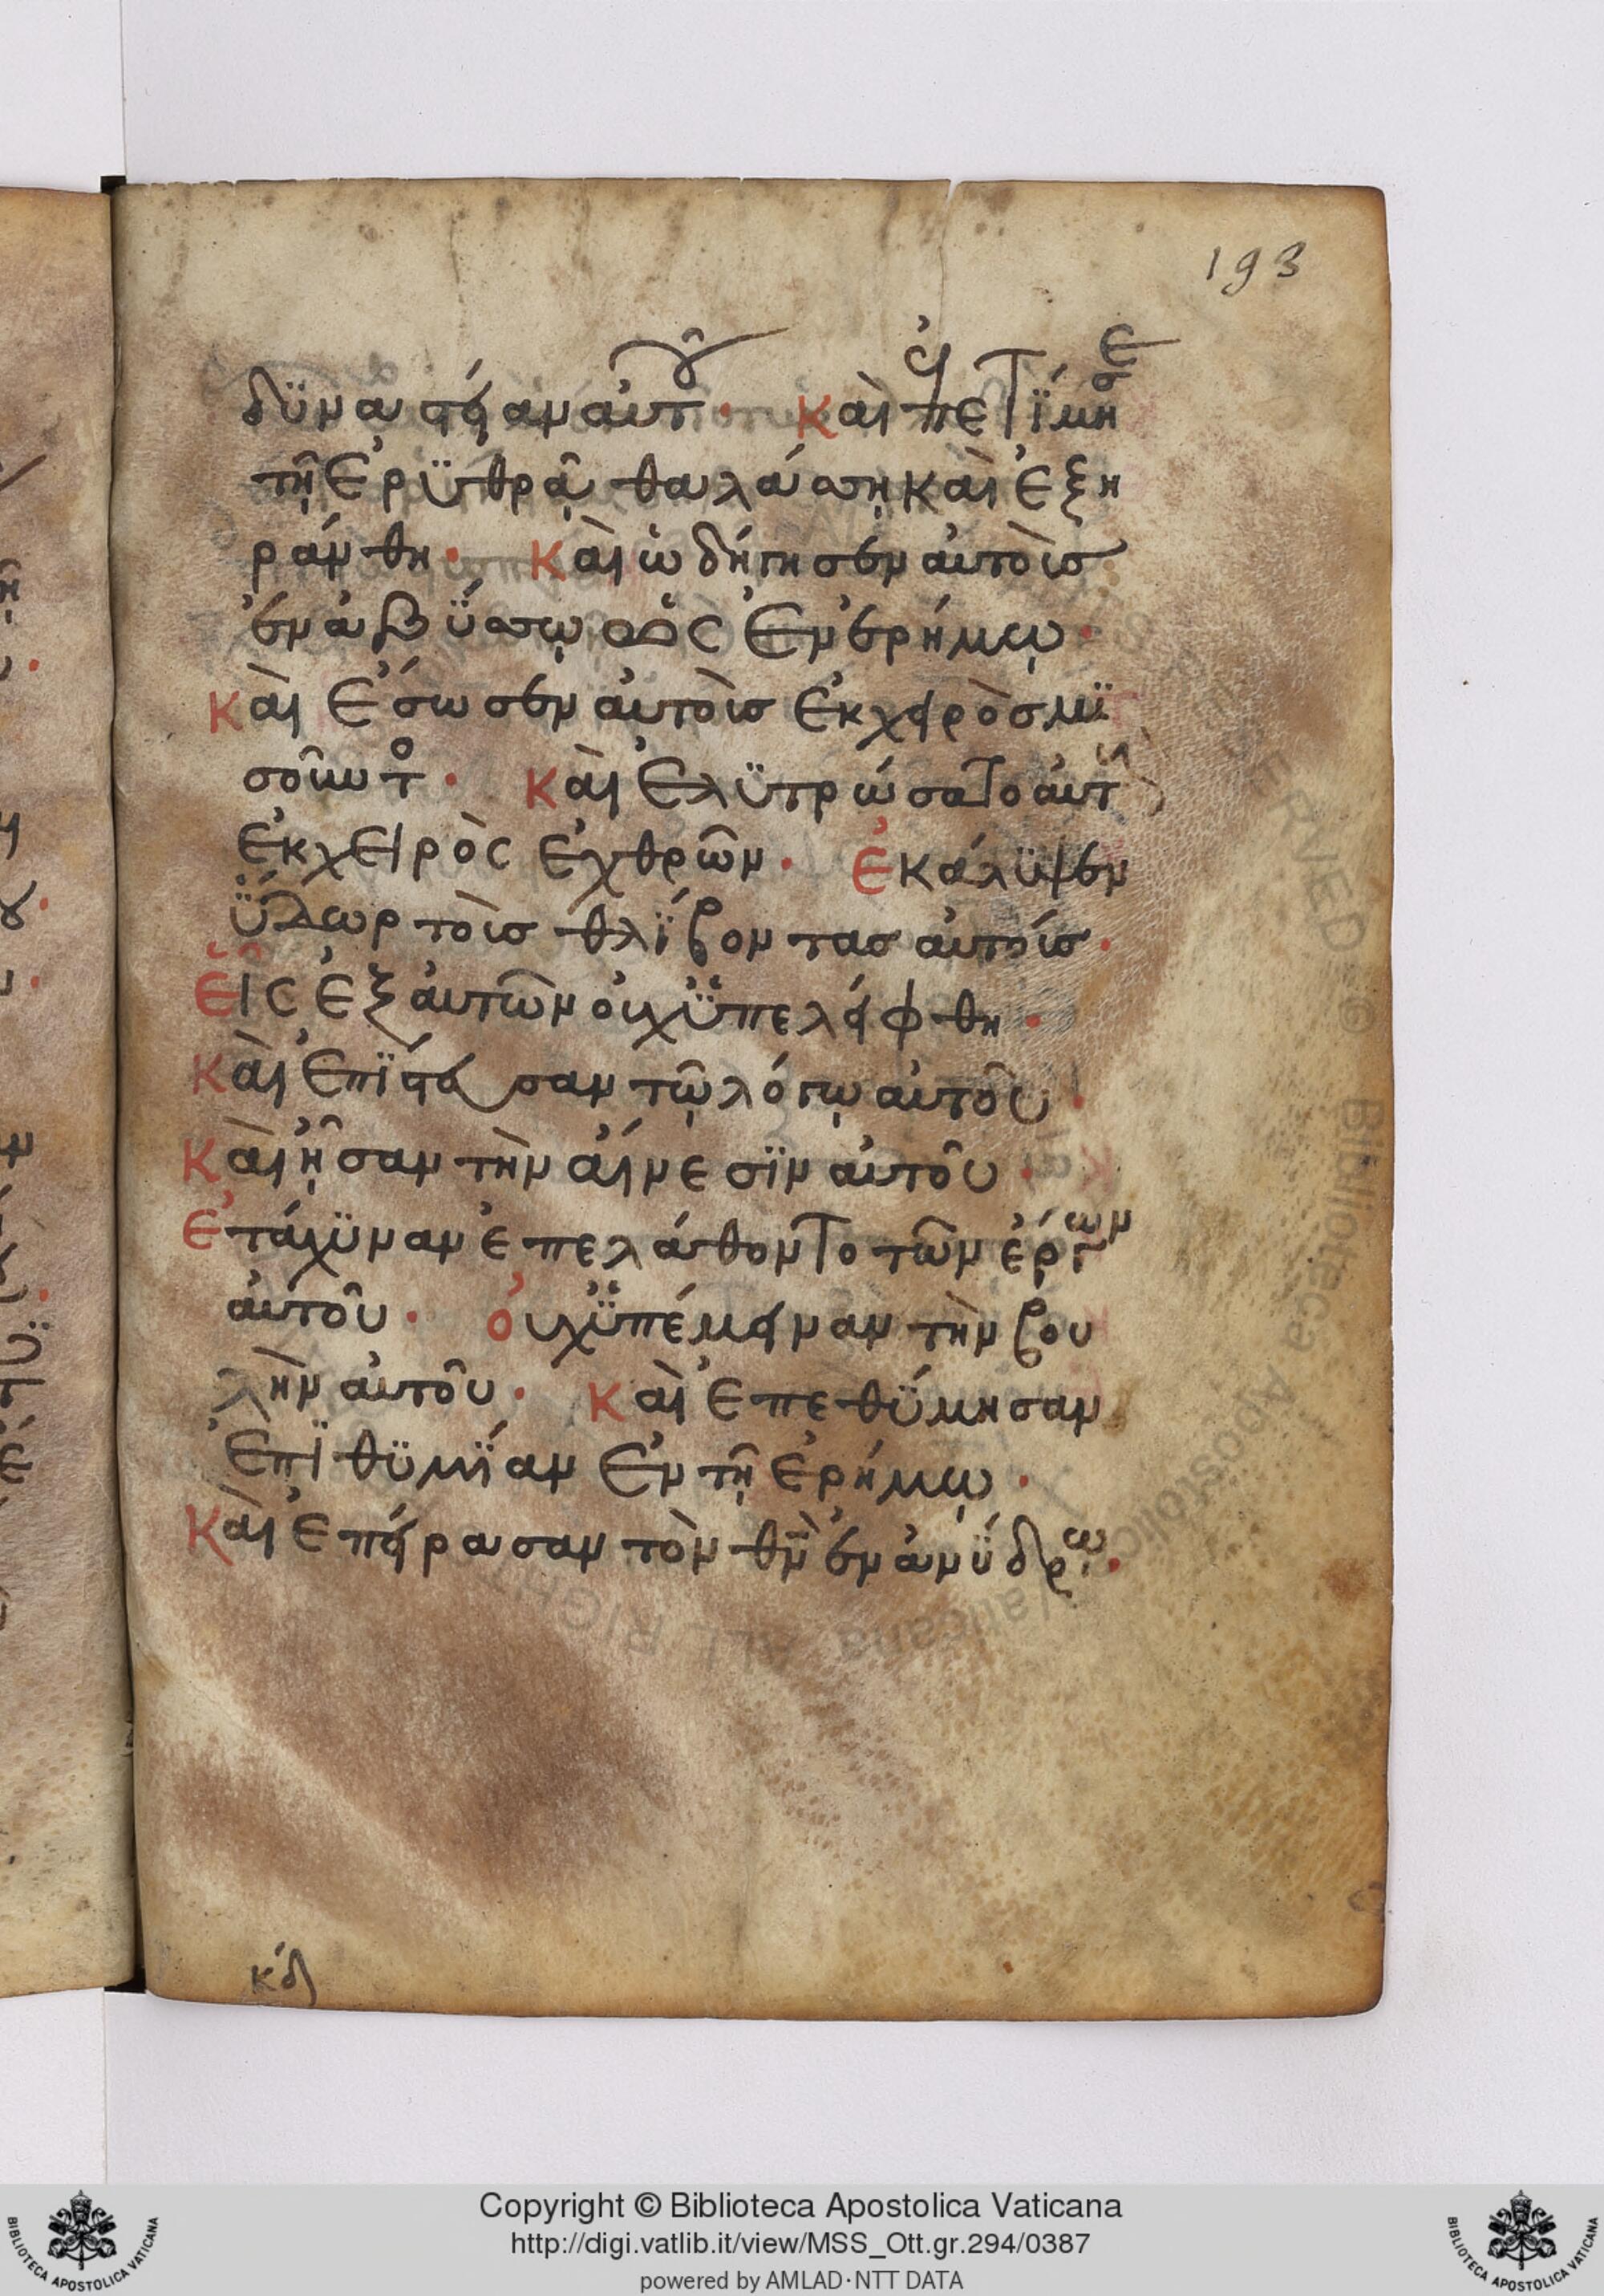 193
δϋναστείαν αὐτοῦ · Καὶ ἐπετΐμησε
τῆ ἐρϋθρᾶ θαλάσση καὶ ἐξη
ράνθη · Καὶ ὡδήγησεν αὐτοὺσ
ἐν ἀβΰσσω ὡς ἐν ἐρήμω ·
Καὶ ἔσωσεν αὐτοὺσ ἐκ χειρὸσ μϊ
σοῦντο · Καὶ ἐλϋτρώσατο αὐτ
ἐκ χειρὸς ἐχθρῶν · Ἐκάλϋψεν
ΰδωρ τοὺσ θλΐβοντασ αὐτούσ ·
Εἷς ἐξ αὐτῶν οὐχ ϋπελείφθη ·
Καὶ ἐπΐστευσαν τῶ λόγω αὐτοῦ ·
Καὶ ἦσαν τὴν αἴνεσϊν αὐτοῦ ·
Ἐτάχϋναν ἐπελάθοντο τῶν ἔργων
αὐτοῦ · Οὐχ ϋπέμειναν τὴν βου
λὴν αὐτοῦ · Καὶ ἐπεθΰμησαν
ἐπϊθϋμΐαν ἐν τῆ ἐρήμω ·
Καὶ ἐπείρασαν τὸν θν ἐν ἀνΰδρω ·
κδ
Copyright © Biblioteca Apostolica Vaticana
http://digi.vatlib.it/view/MSS_Ott.gr.294/0387
powered by AMLAD·NTT DATA
BIBLIOTECA APOSTOLICA VATICANA
BIBLIOTECA APOSTOLICA VATICANA